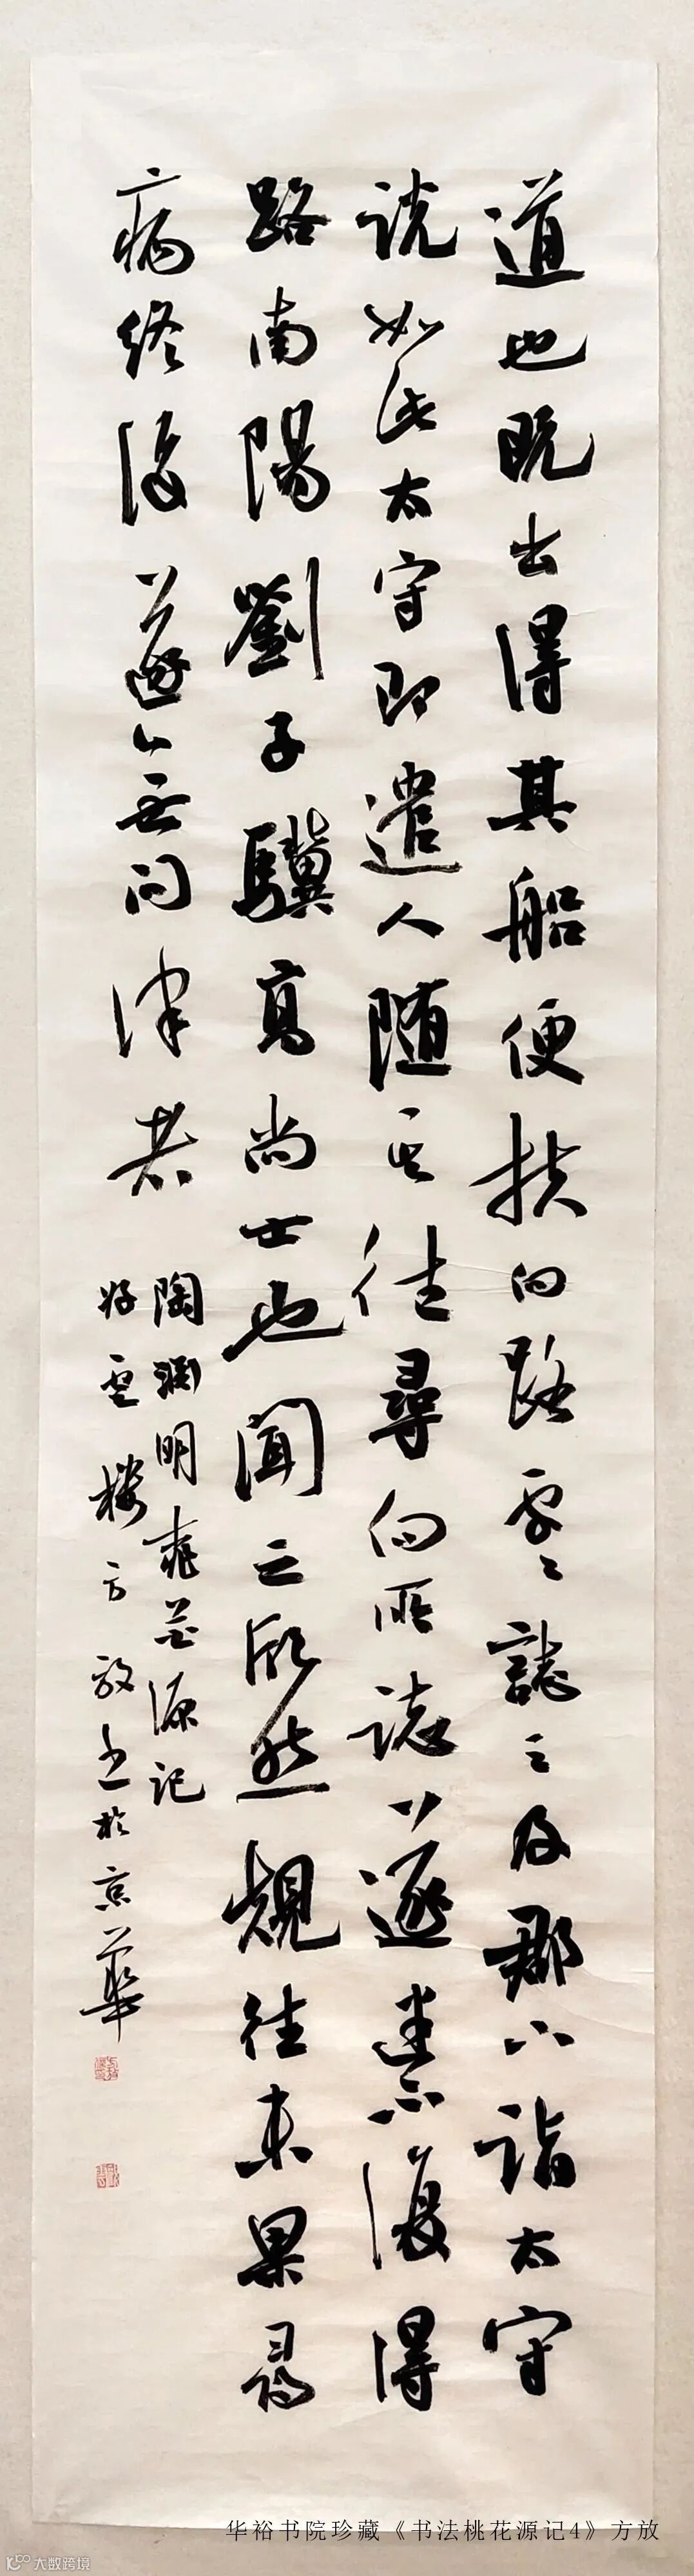 道也既出得其船便扶向路處々誌之及郡下詣太守
说如此太守即遣人随其往尋向所誌遂迷不復得
路南陽劉子驥高尚士也闻之欣然規往未果尋
病终後遂無问津者
陶渊明桃花源记
好雲楼方放书於京華
华裕书院珍藏《书法桃花源记4》方放
大数跨境